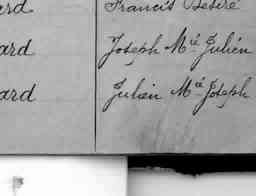 ard Francis Désiré
ard Joseph Mie Julien
ard Julien Mie Joseph